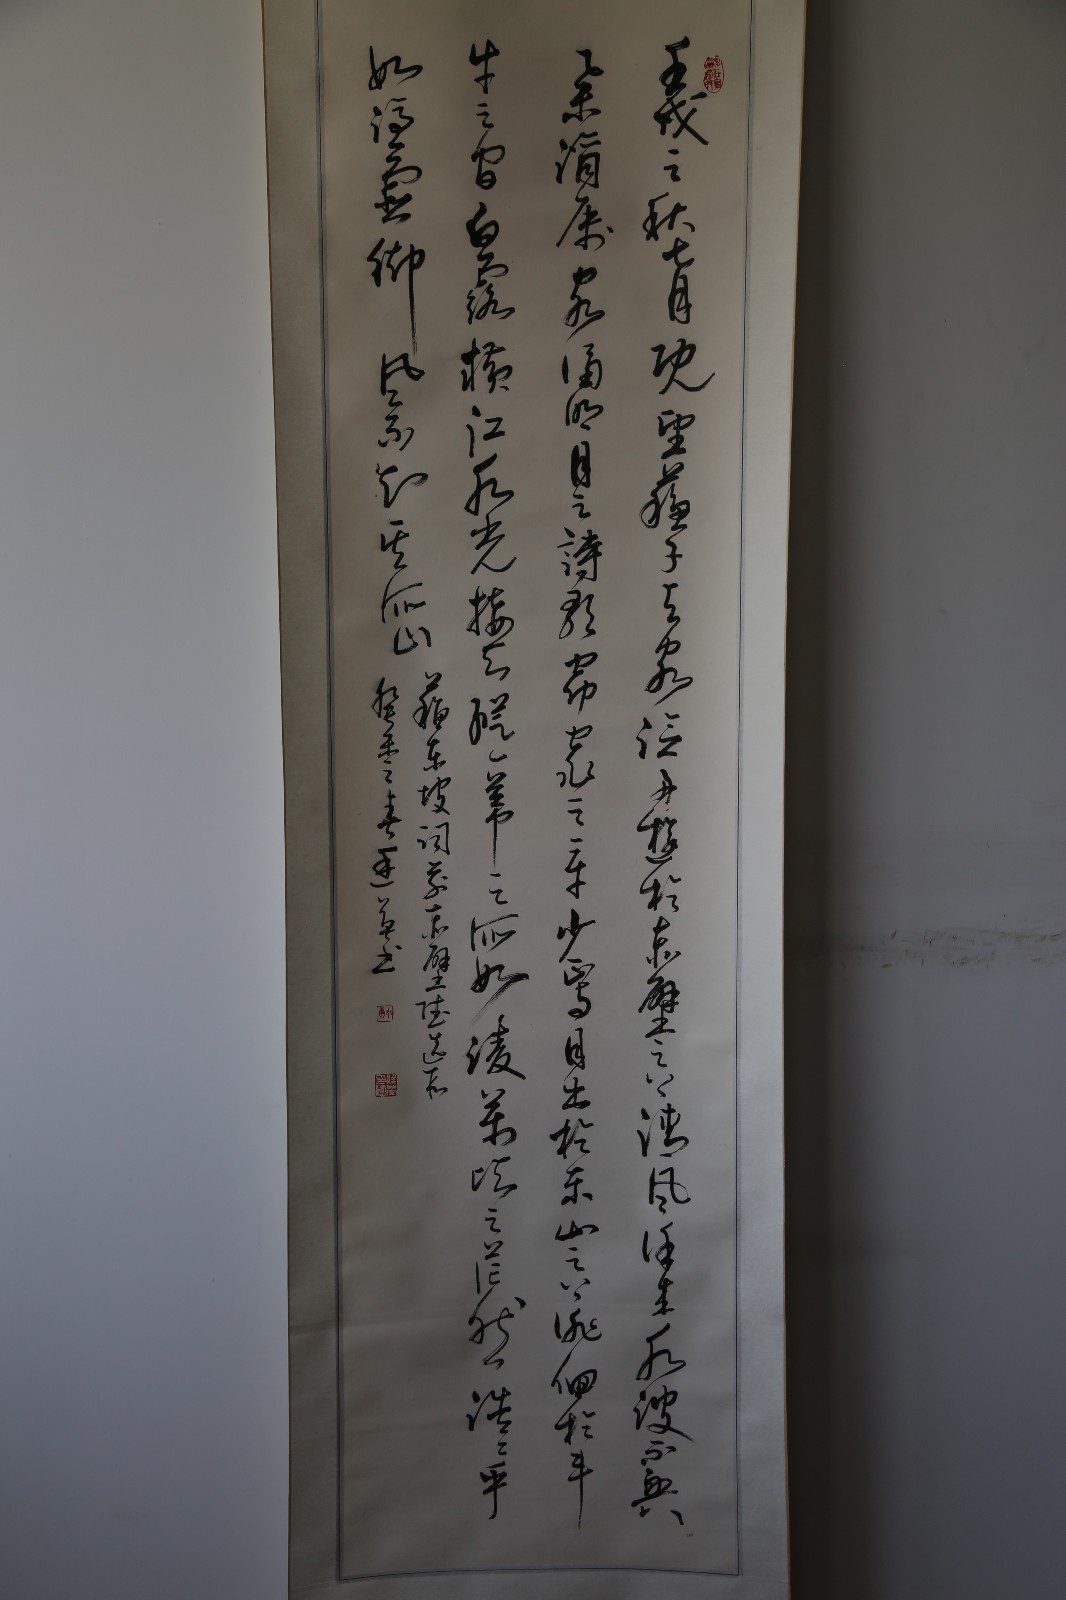 壬戌之秋七月既望蘇子与客泛舟遊於赤壁之下清風徐来水波不興
乗酒属客誦明月之詩歌窈窕之章少焉月出於东山之下徘徊於斗
牛之间白露横江水光接天縱一苇之所如凌萬頃之茫然浩浩乎
如憑虚御风而不知其所止
蘇东坡词前赤壁赋
癸之春书